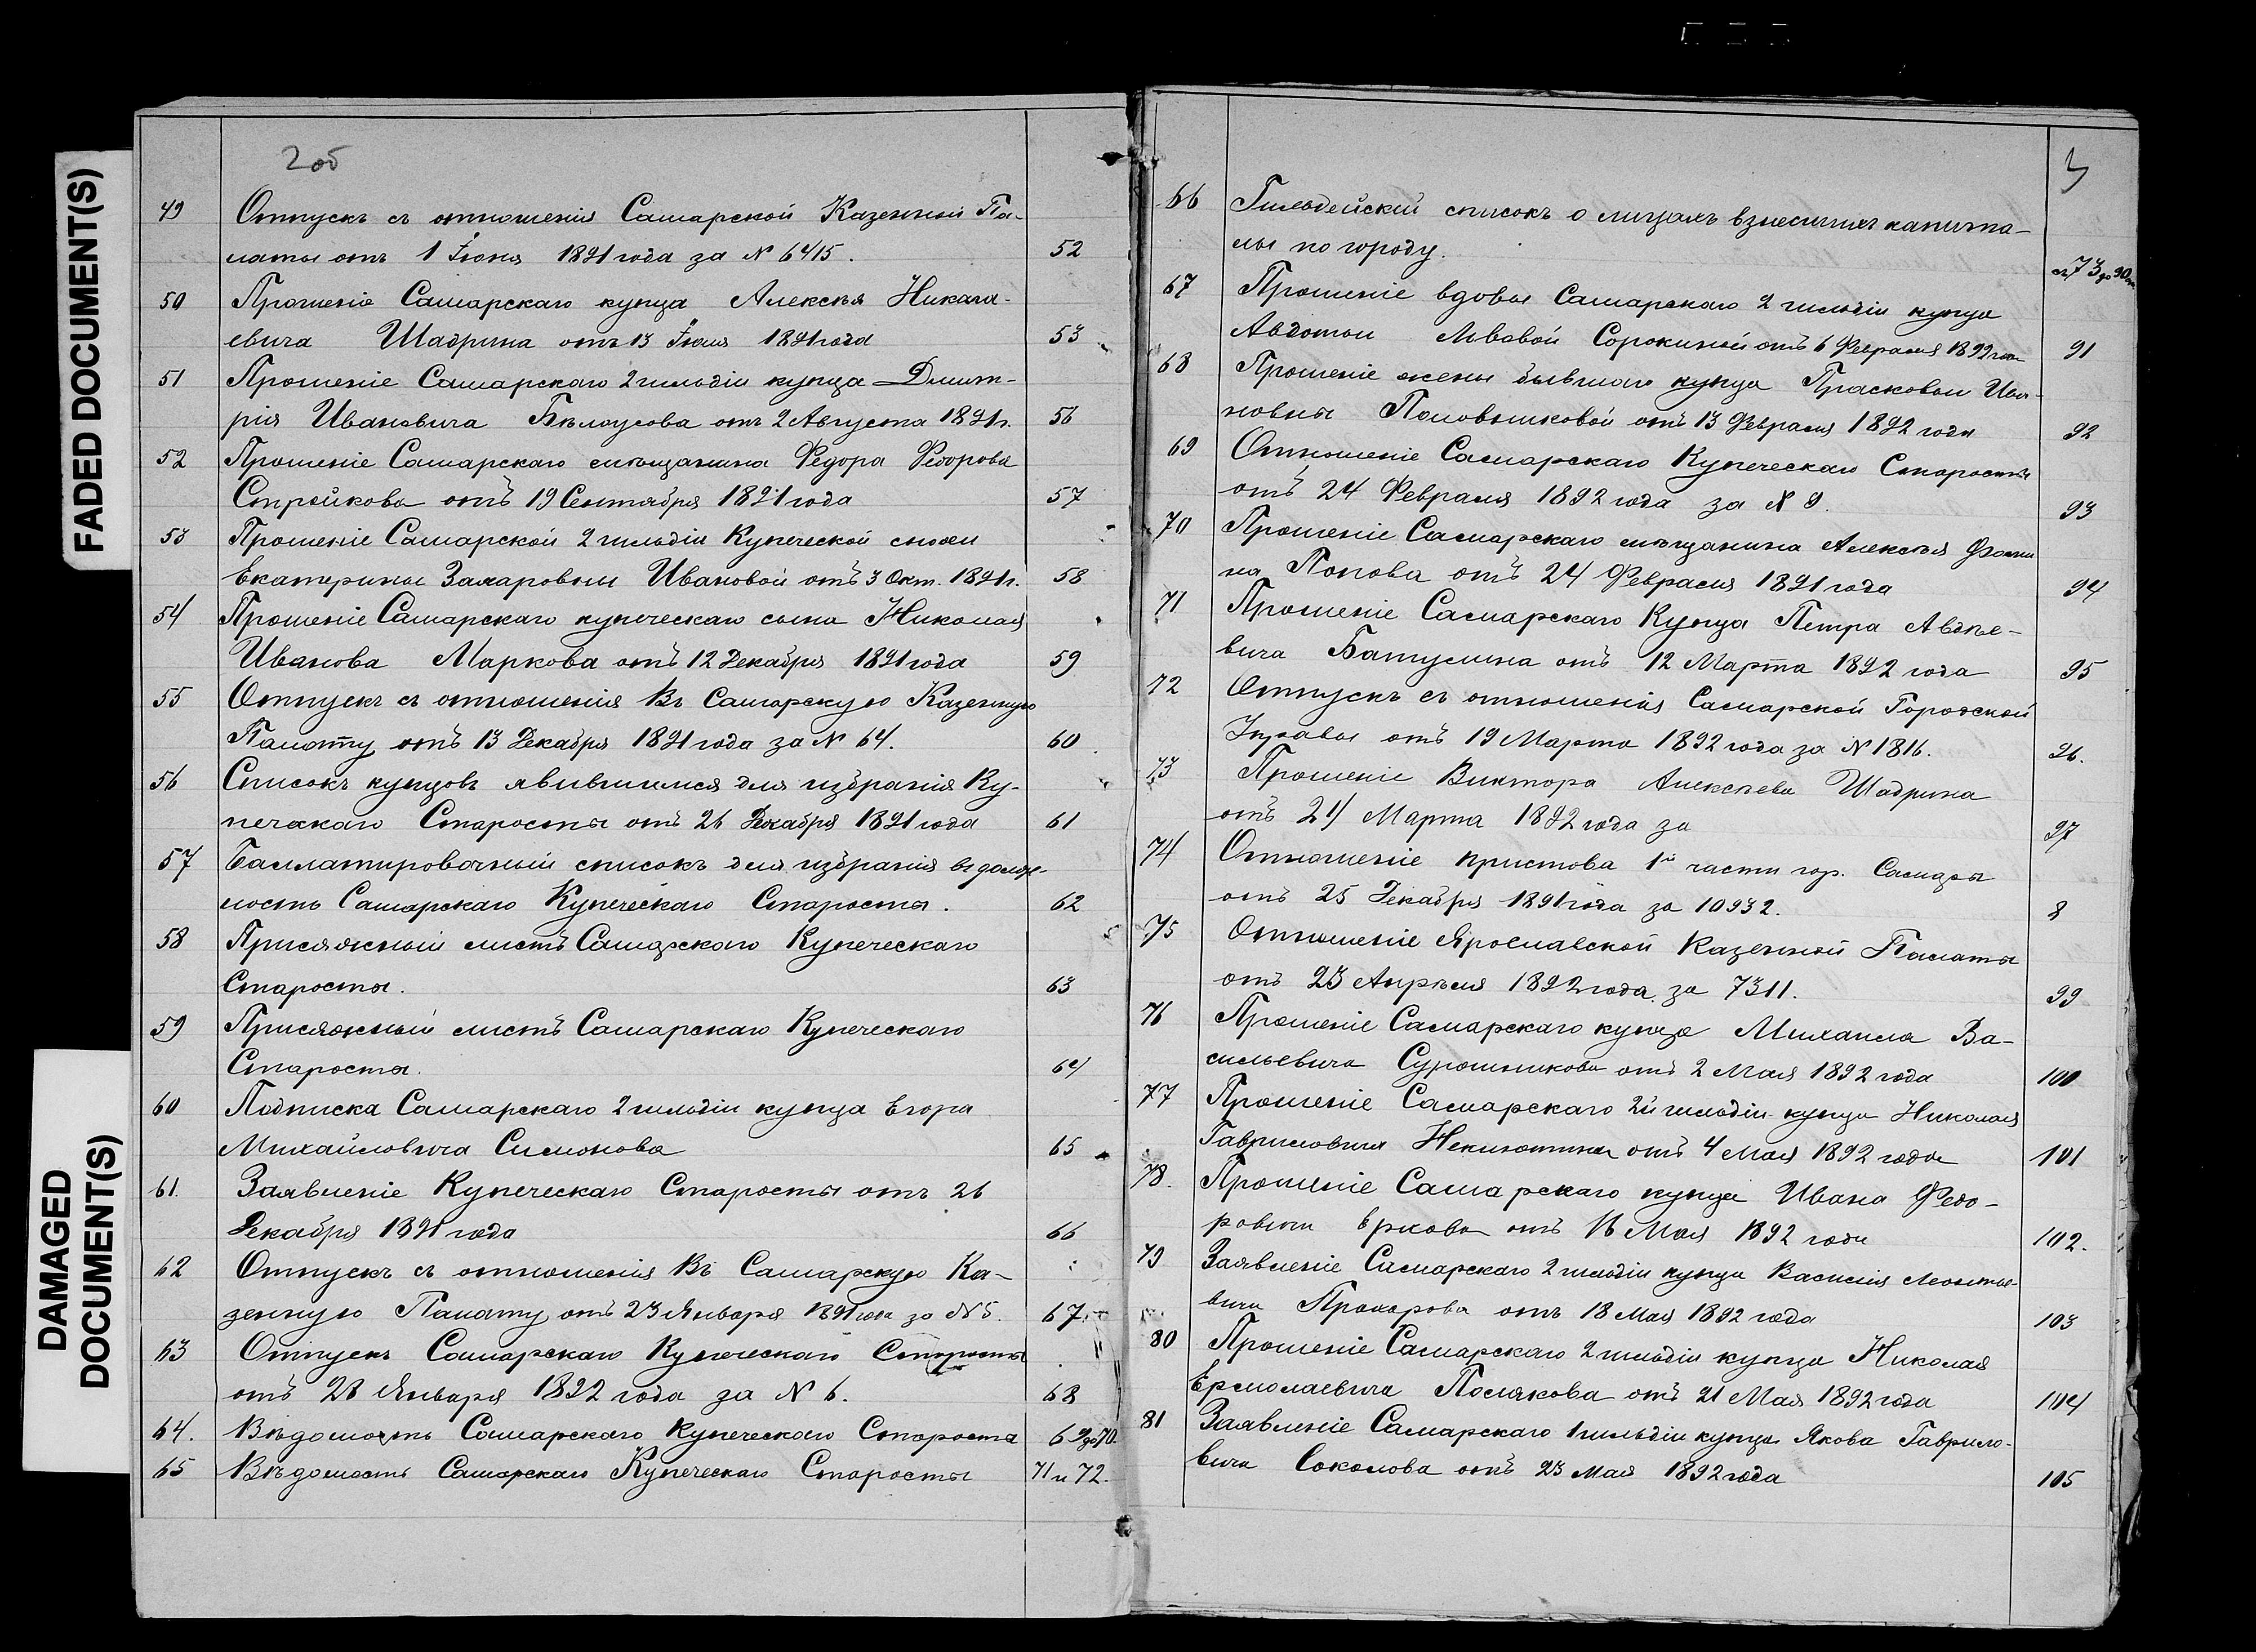 FADED DOCUMENT(S)
DAMAGED
DOCUMENT(S)
2об
49 Отпускъ съ отношенія Самарской Казенной Па-
латы отъ 1 Іюня 1891 года за № 6415. 52
50 Прошеніе Самарскаго купца Алексѣя Никала-
евича Шадрина отъ 13 Іюля 1891 года 53
51 Прошеніе Самарскаго 2 гильдіи купца Дмит-
рія Ивановича Бѣлоусова отъ 2 Августа 1891 г. 56
52 Прошеніе Самарскаго мѣщанина Федора Федорова
Стройкова отъ 19 Сентября 1891 года 57
53 Прошеніе Самарской 2 гильдіи Купеческой снохи
Екатерины Захаровны Ивановой отъ 3 Окт. 1891 г. 58
54 Прошеніе Самарскаго купеческаго сына Николая
Иванова Маркова отъ 12 Декабря 1891 года 59
55 Отпускъ съ отношенія Въ Самарскую Казенную
Палату отъ 13 Декабря 1891 года за № 64. 60
56 Списокъ купцовъ явившимся для избранія Ку-
печскаго Старосты отъ 26 Декабря 1891 года 61
57 Баллатировочный списокъ для избранія въ долж-
ность Самарскаго Купеческаго Старосты. 62
58 Присяжный листъ Самарскаго Купеческаго
Старосты. 63
59 Присяжный листъ Самарскаго Купеческаго
Старосты. 64
60 Подписка Самарскаго 2 гильдіи купца Егора
Михайловича Симонова 65
61. Заявленіе Купеческаго Старосты отъ 26
Декабря 1891 года 66
62 Отпускъ съ отношенія Въ Самарскую Ка-
зенную Палату отъ 23 Января 1891 года за № 5. 67
63 Отпускъ Самарскаго Купеческаго Старосты
отъ 28 Января 1892 года за № 6. 68
64. Вѣдомость Самарскаго Купеческаго Старосты 69 до 70.
65 Вѣдомость Самарскаго Купеческаго Старосты 71 и 72.
3
66 Гильдейскій списокъ о лицахъ взнесшихъ капита-
лы по городу. съ 73 до 90
67 Прошеніе вдовы Самарскаго 2 гильдіи купца
Авдотьи Львовой Сорокиной отъ 6 Февраля 1892 года 91
68 Прошеніе жены бывшаго купца Прасковьи Ива-
новны Половниковой отъ 13 Февраля 1892 года 92
69 Отношеніе Самарскаго Купеческаго Старосты
отъ 24 Февраля 1892 года за № 9. 93
70 Прошеніе Самарскаго мѣщанина Алексѣя Фоми
на Попова отъ 24 Февраля 1891 года 94
71 Прошеніе Самарскаго Купца Петра Авдѣе-
вича Батулина отъ 12 Марта 1892 года 95
72 Отпускъ съ отношенія Самарской Городской
Управы отъ 19 Марта 1892 года за № 1816. 96.
73 Прошеніе Виктора Алексѣева Шадрина
отъ 24 Марта 1892 года за 97
74 Отношеніе пристова 1й части гор. Самары
отъ 25 Декабря 1891 года за 10932. 8
75 Отношеніе Ярославской Казенной Палаты
отъ 23 Апрѣля 1892 года за 7311. 99
76 Прошеніе Самарскаго купца Михаила Ва-
сильевича Сурошникова отъ 2 Мая 1892 года 100
77 Прошеніе Самарскаго 2й гильдіи купца Николая
Гавриловича Неклютина отъ 4 Мая 1892 года 101
78. Прошеніе Самарскаго купца Ивана Федо-
ровича Еркова отъ 16 Мая 1892 года 102.
79 Заявленіе Самарскаго 2 гильдіи купца Василія Леонтье-
вича Прохорова отъ 18 Мая 1892 года 103
80 Прошеніе Самарскаго 2 гильдіи купца Николая
Ермолаевича Полякова отъ 21 Мая 1892 года 104
81 Заявленіе Самарскаго 1 гильдіи купца Якова Гаврило-
вича Соколова отъ 23 Мая 1892 года 105